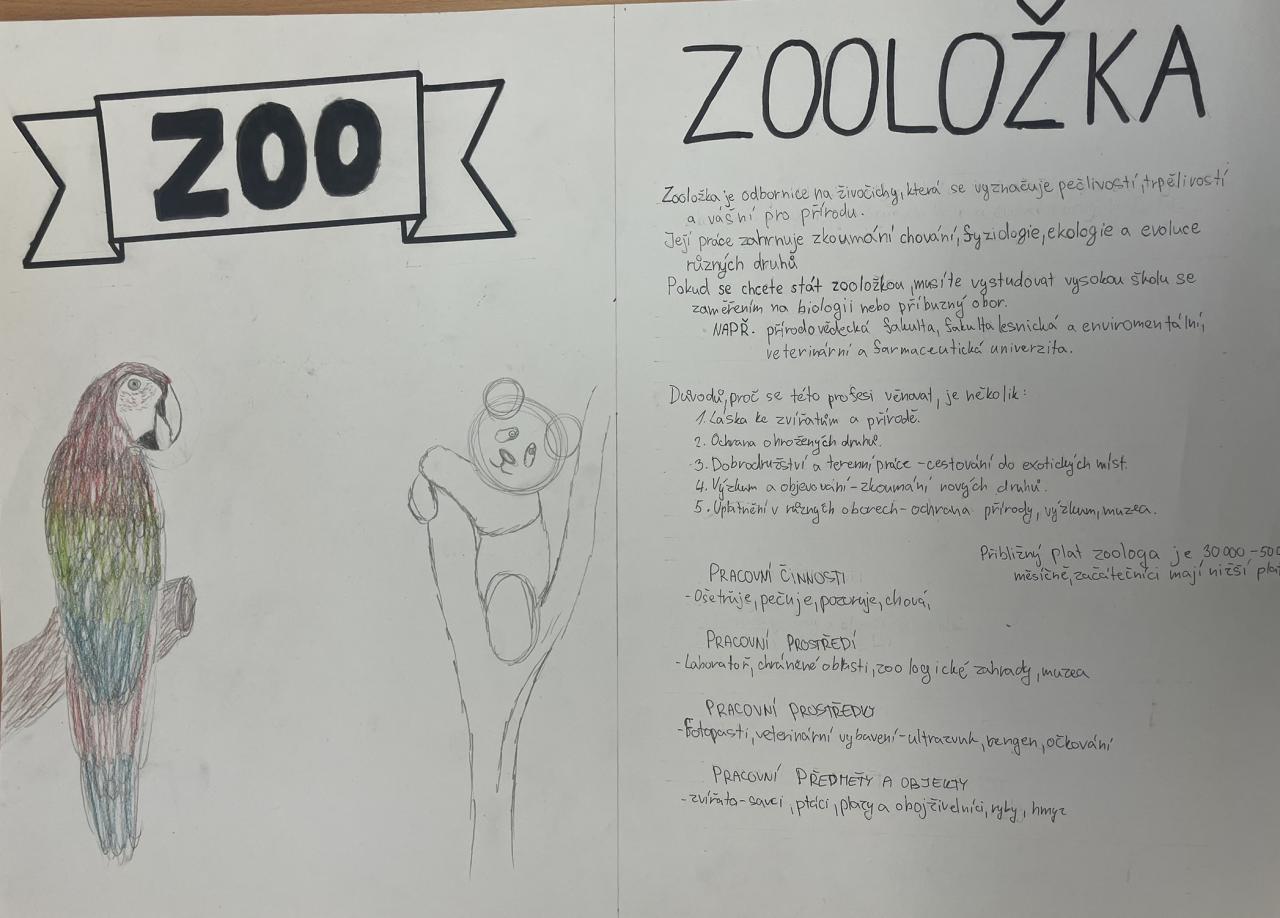 ZOO
ZOOLOŽKA
Zooložka je odbornice na živočichy, která se vyznačuje pečlivostí, trpělivostí
a vášní pro přírodu.
Její práce zahrnuje zkoumání chování, fyziologie, ekologie a evoluce
různých druhů
Pokud se chcete stát zooložkou, musíte vystudovat vysokou školu se
zaměřením na biologii nebo příbuzný obor.
NAPŘ. přírodovědecká fakulta, fakulta lesnická a enviromentální,
veterinární a farmaceutická univerzita.
Důvodů, proč se této profesi věnovat, je několik:
1. Láska ke zvířatům a přírodě.
2. Ochrana ohrožených druhů.
3. Dobrodružství a terenní práce - cestování do exotických míst.
4. Výzkum a objevování - zkoumání nových druhů.
5. Uplatnění v různých oborech - ochrana přírody, výzkum, muzea.
Přibližný plat zoologa je 30 000 - 500
měsíčně, začátečníci mají nižší
PRACOVNÍ ČINNOSTI
- Ošetřuje, pečuje, pozoruje, chová,
PRACOVNÍ PROSTŘEDÍ
- Laboratoř, chráněné oblasti, zoologické zahrady, muzea
PRACOVNÍ PROSTŘEDKY
- Fotopasti, veterinární vybavení - ultrazvuk, rengen, očkování
PRACOVNÍ PŘEDMĚTY A OBJEKTY
- zvířata - savci, ptáci, plazy a obojživelníci, ryby, hmyz